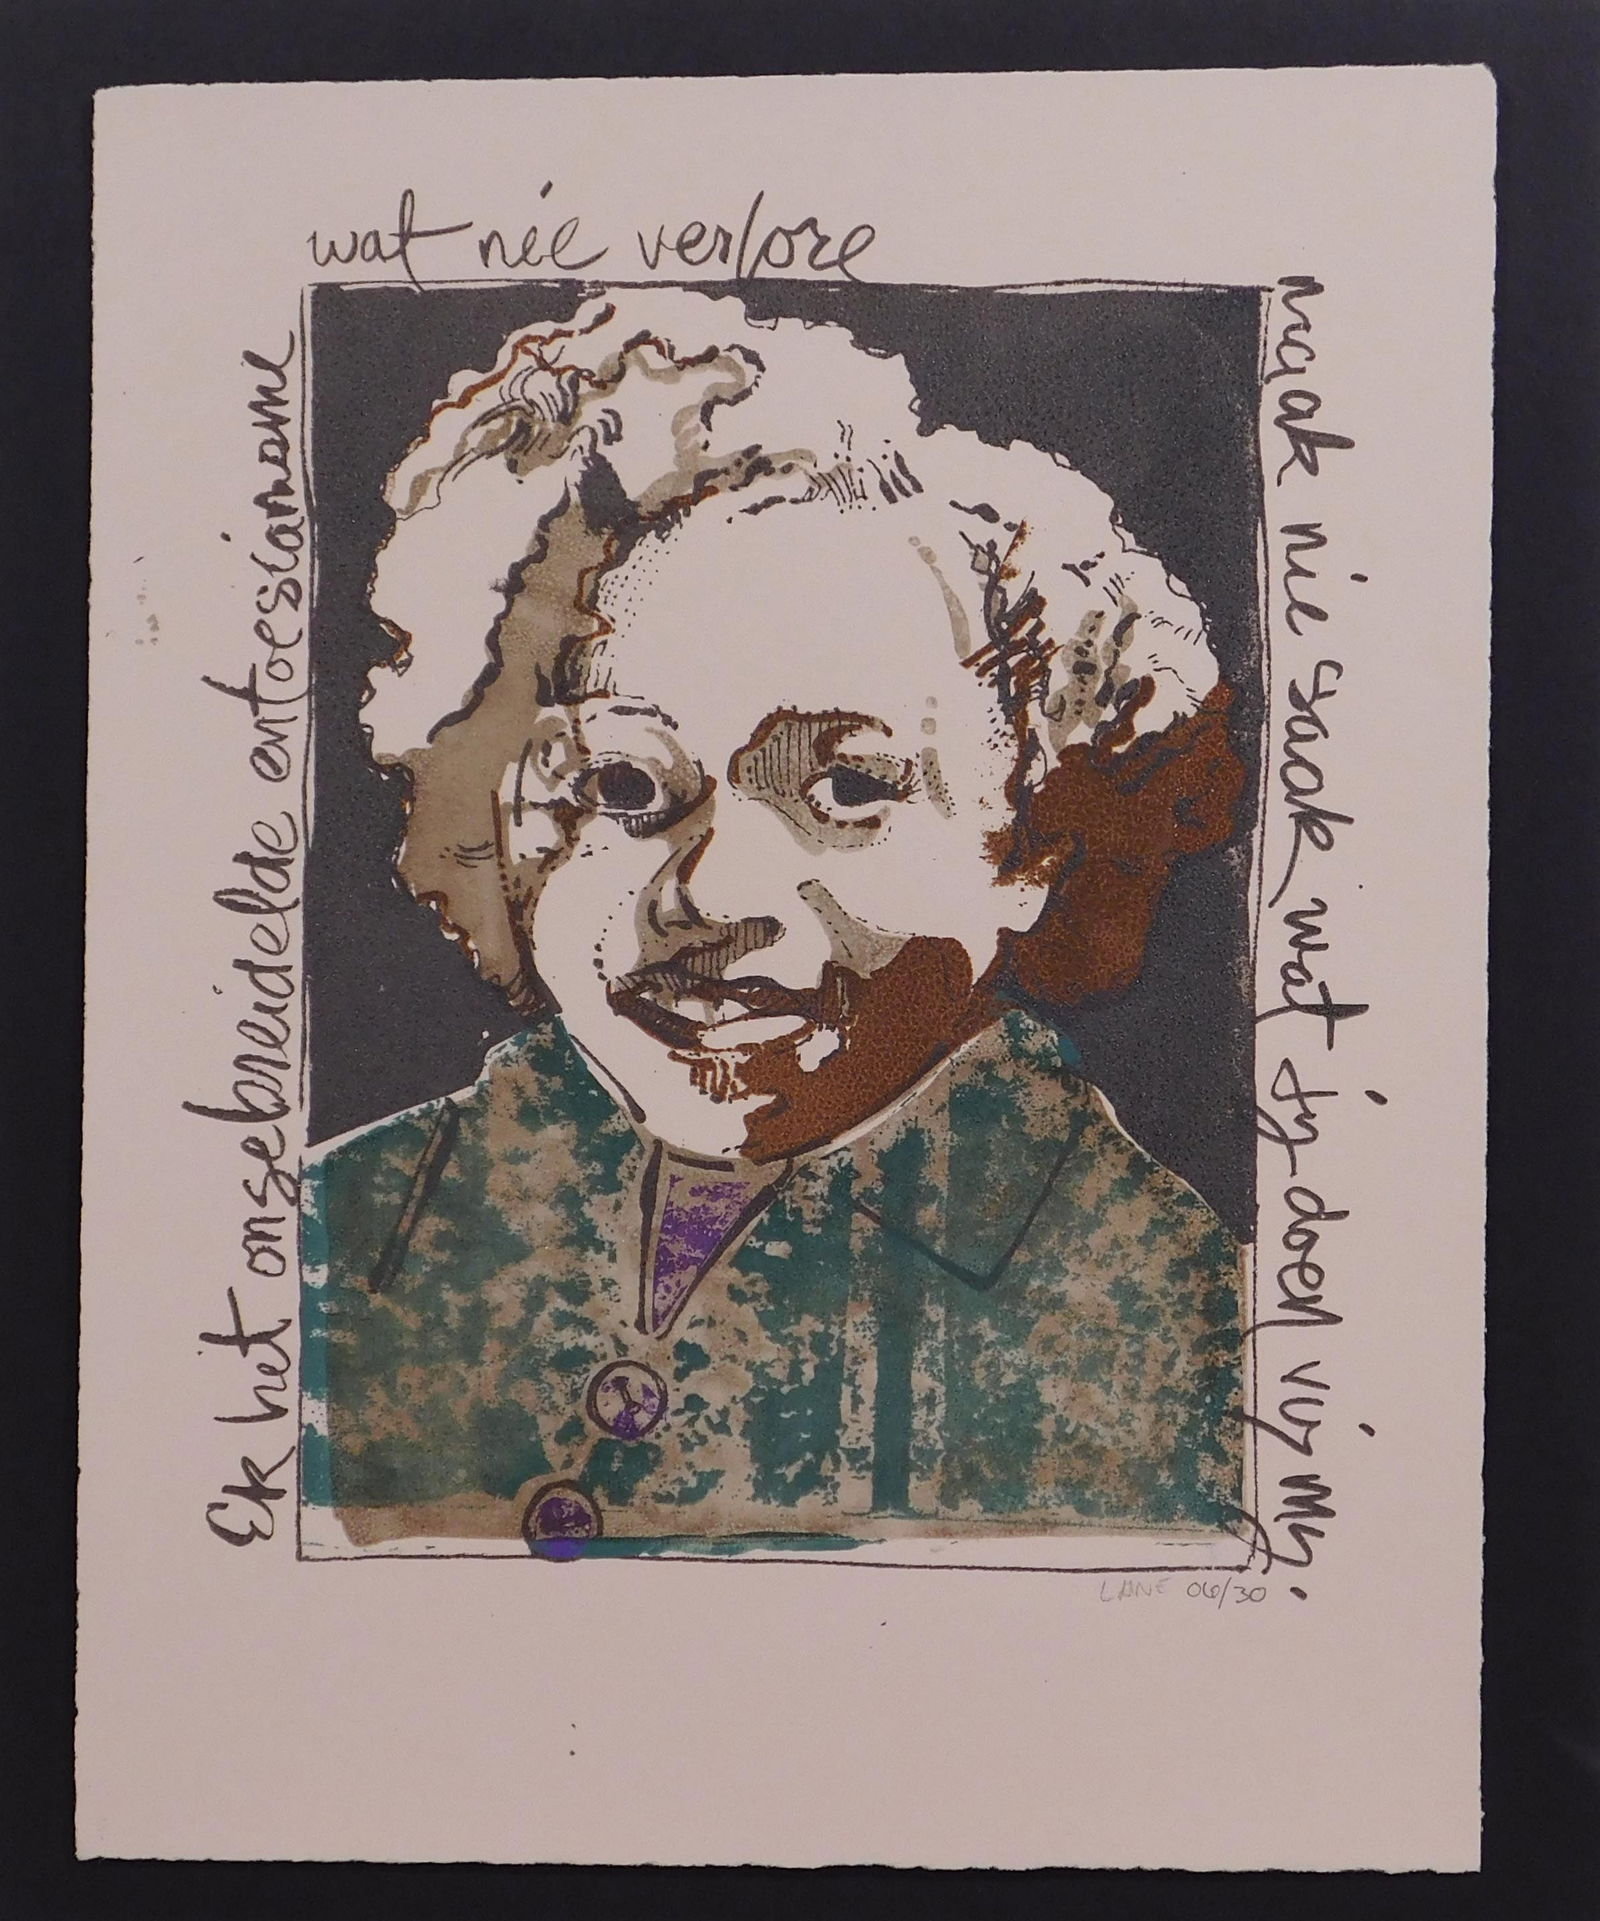 Ek het ongebreidelde entoesiamame
wat nie verlore
maak nie saak wat jy doen viy my.
LANE 06/30